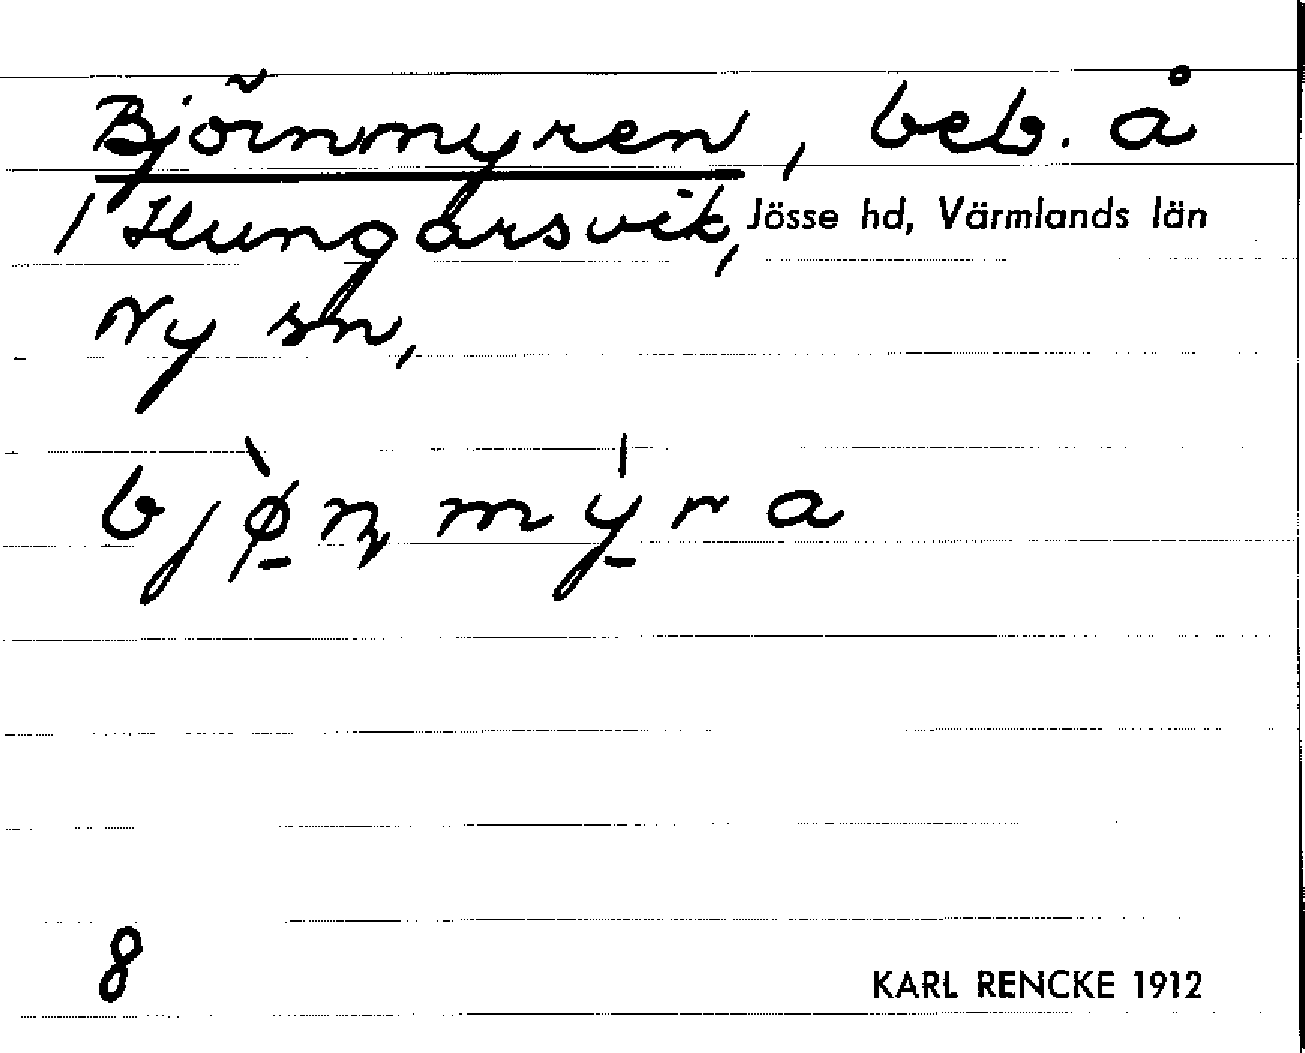 Björnmyren, beb. å
1 Hungarsvik, Jösse hd, Värmlands län
Ny sn,
bjø̠̀ɳmy̠̍ra
8
KARL RENCKE 1912